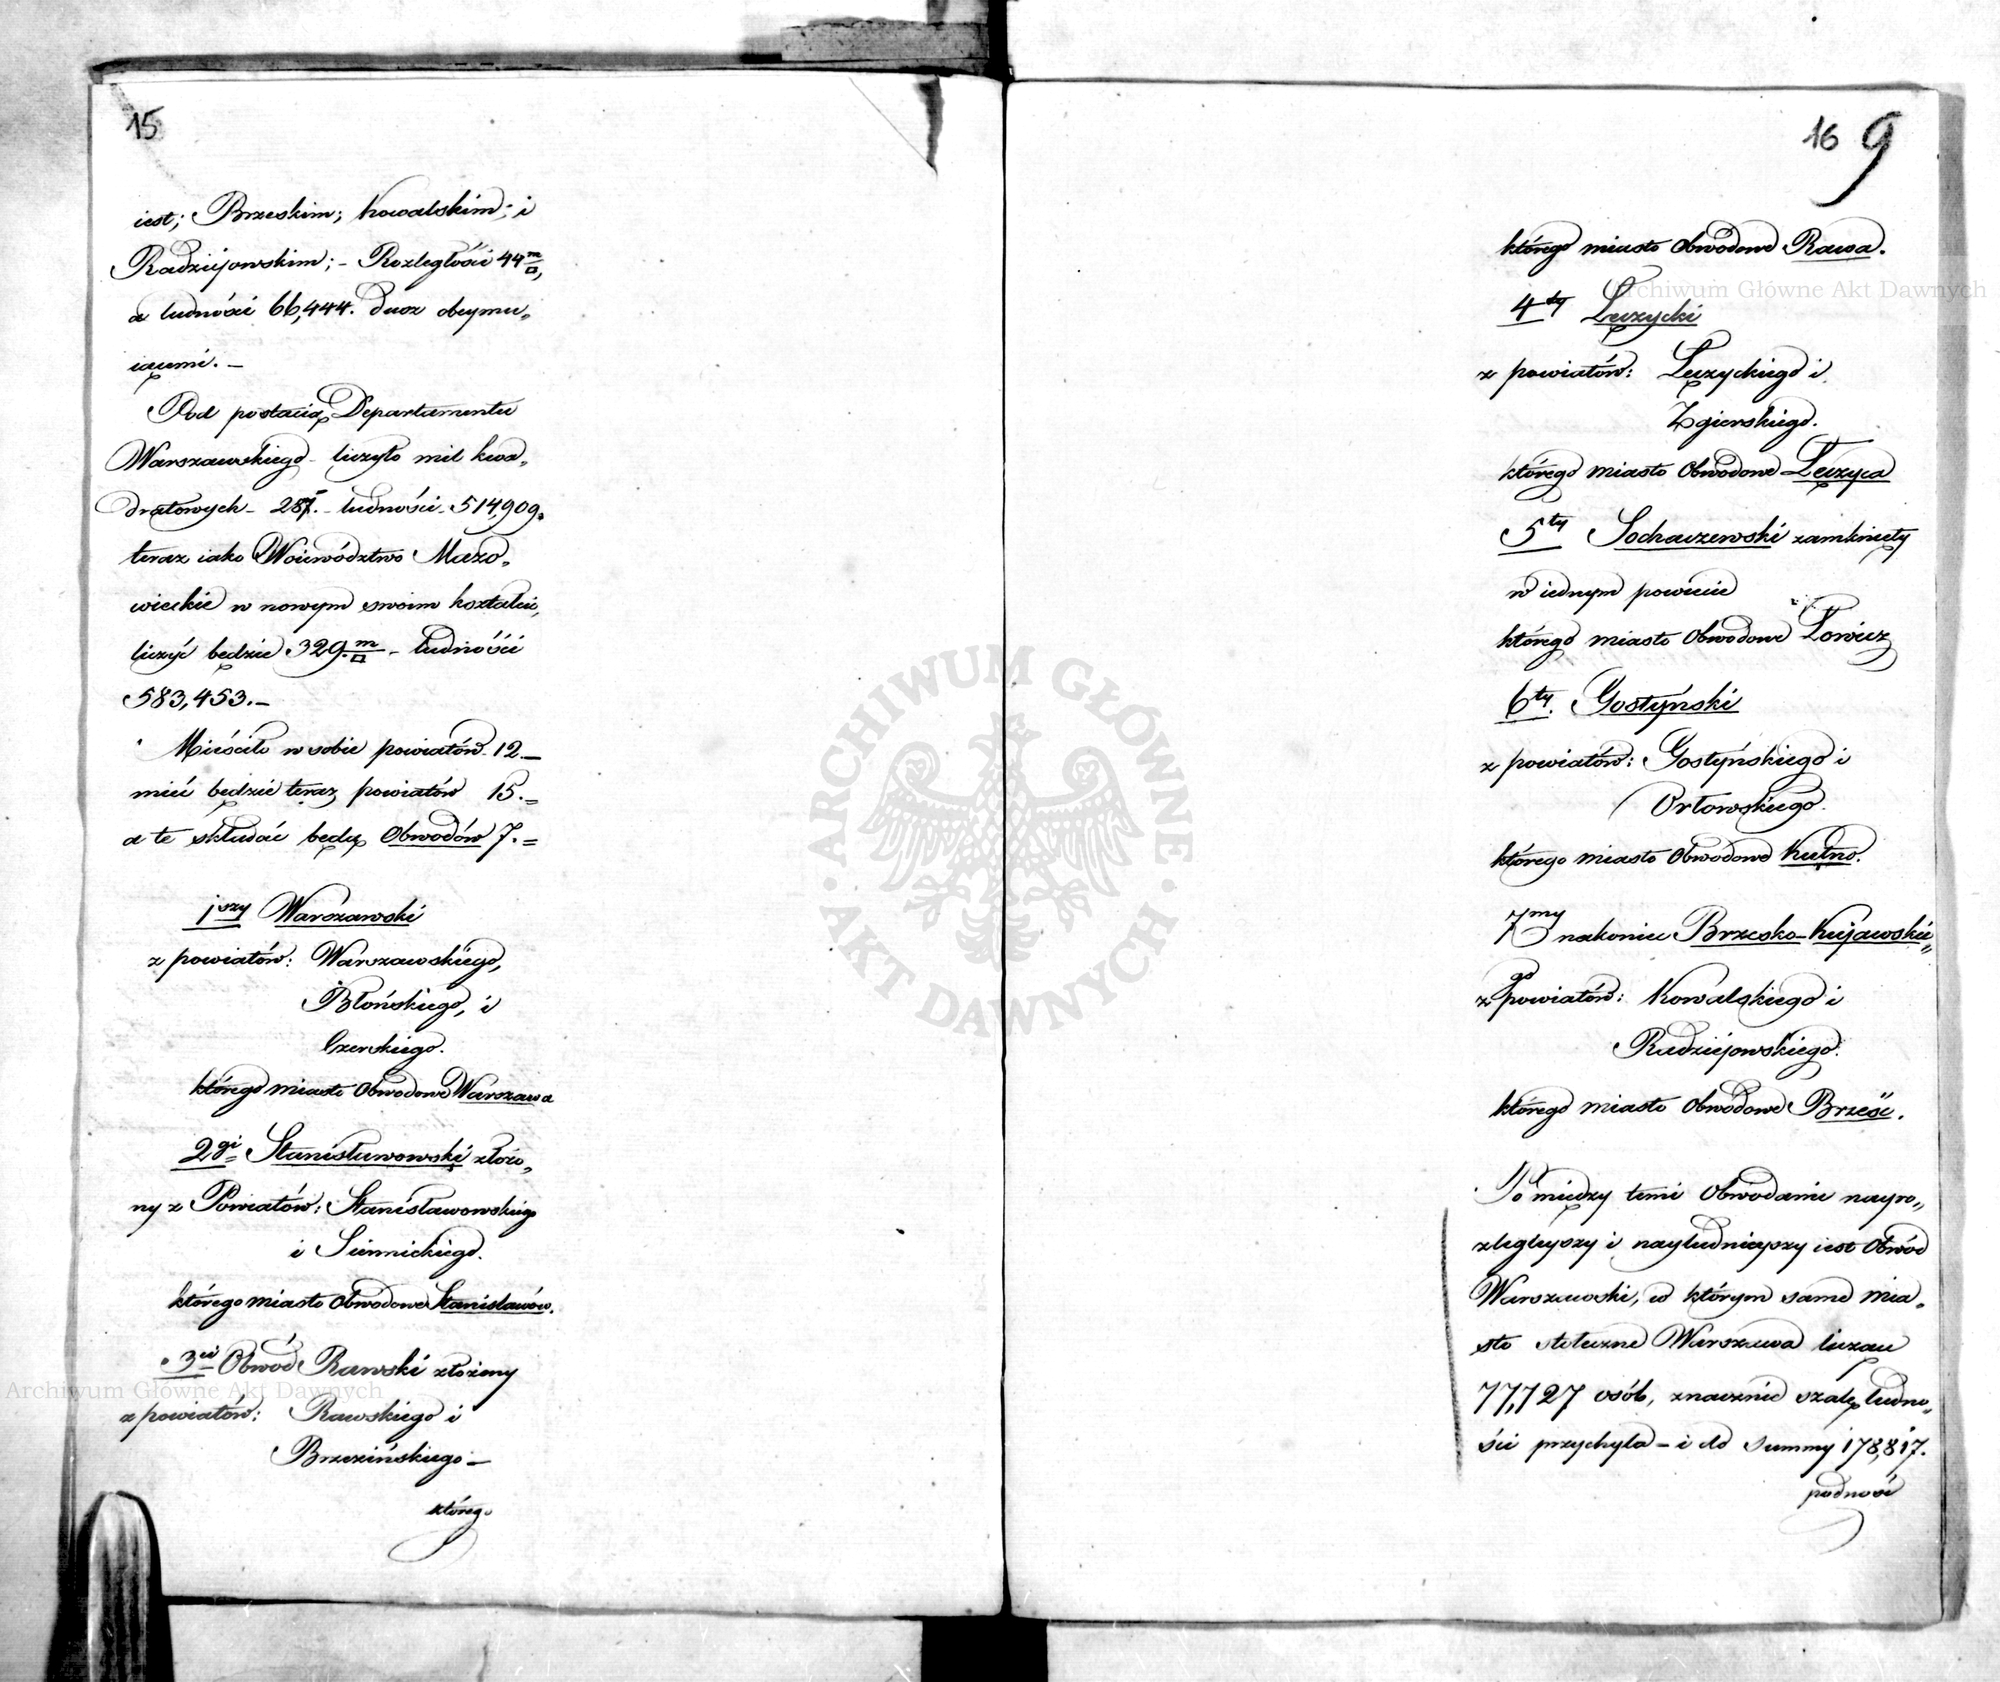 15
iest; Brzeskim; Kowalskim; i
Radziejowskim; - Rozległości 44 m/□,
a ludności 66,444. dusz obeymu„
iącemi. -
Pod postacią Departamentu
Warszawskiego - liczyło mil kwa„
dratowych - 287. - ludności - 514,909.
teraz iako Woiewództwo Mazo„
wieckie w nowym swoim kształcie,
liczyć będzie 329. m/□ - ludności
583,453. -
Mieściło w sobie powiatów - 12. -
mieć będzie teraz powiatów 15. =
a te składać będą Obwodów 7. =
1szy Warszawski
z powiatów: Warszawskiego,
Błońskiego, i
Czerskiego.
którego miasto Obwodowe Warszawa
2gi Stanisławowski złożo„
ny z Powiatów: Stanisławowskiego
i Siennickiego.
którego miasto Obwodowe Stanisławów.
3ci Obwód Rawski złożony
z powiatów: Rawskiego i
Brzezińskiego -
którego
16 9
którego miasto Obwodowe Rawa.
4ty Łęczycki
z powiatów: Łęczyckiego i
Zgierskiego.
którego miasto Obwodowe Łęczyca
5ty Sochaczewski zamknięty
w iednym powiecie
którego miasto Obwodowe Łowicz
6ty. Gostyński
z powiatów: Gostyńskiego i
Orłowskiego.
którego miasto Obwodowe Kutno.
7my nakoniec Brzesko-Kujawskie„
go
z powiatów: Kowalskiego i
Radziejowskiego.
którego miasto Obwodowe Brześć.
Po między temi Obwodami nayro„
zlegleyszy i nayludnieyszy iest Obwód
Warszawski, w którym samo mia„
sto stołeczne Warszawa licząc
77,727 osób, znacznie szalę ludno„
ści przychyla - i do summy 178,817.
podnosi
ARCHIWUM GŁÓWNE AKT DAWNYCH
Archiwum Główne Akt Dawnych
Archiwum Główne Akt Dawnych